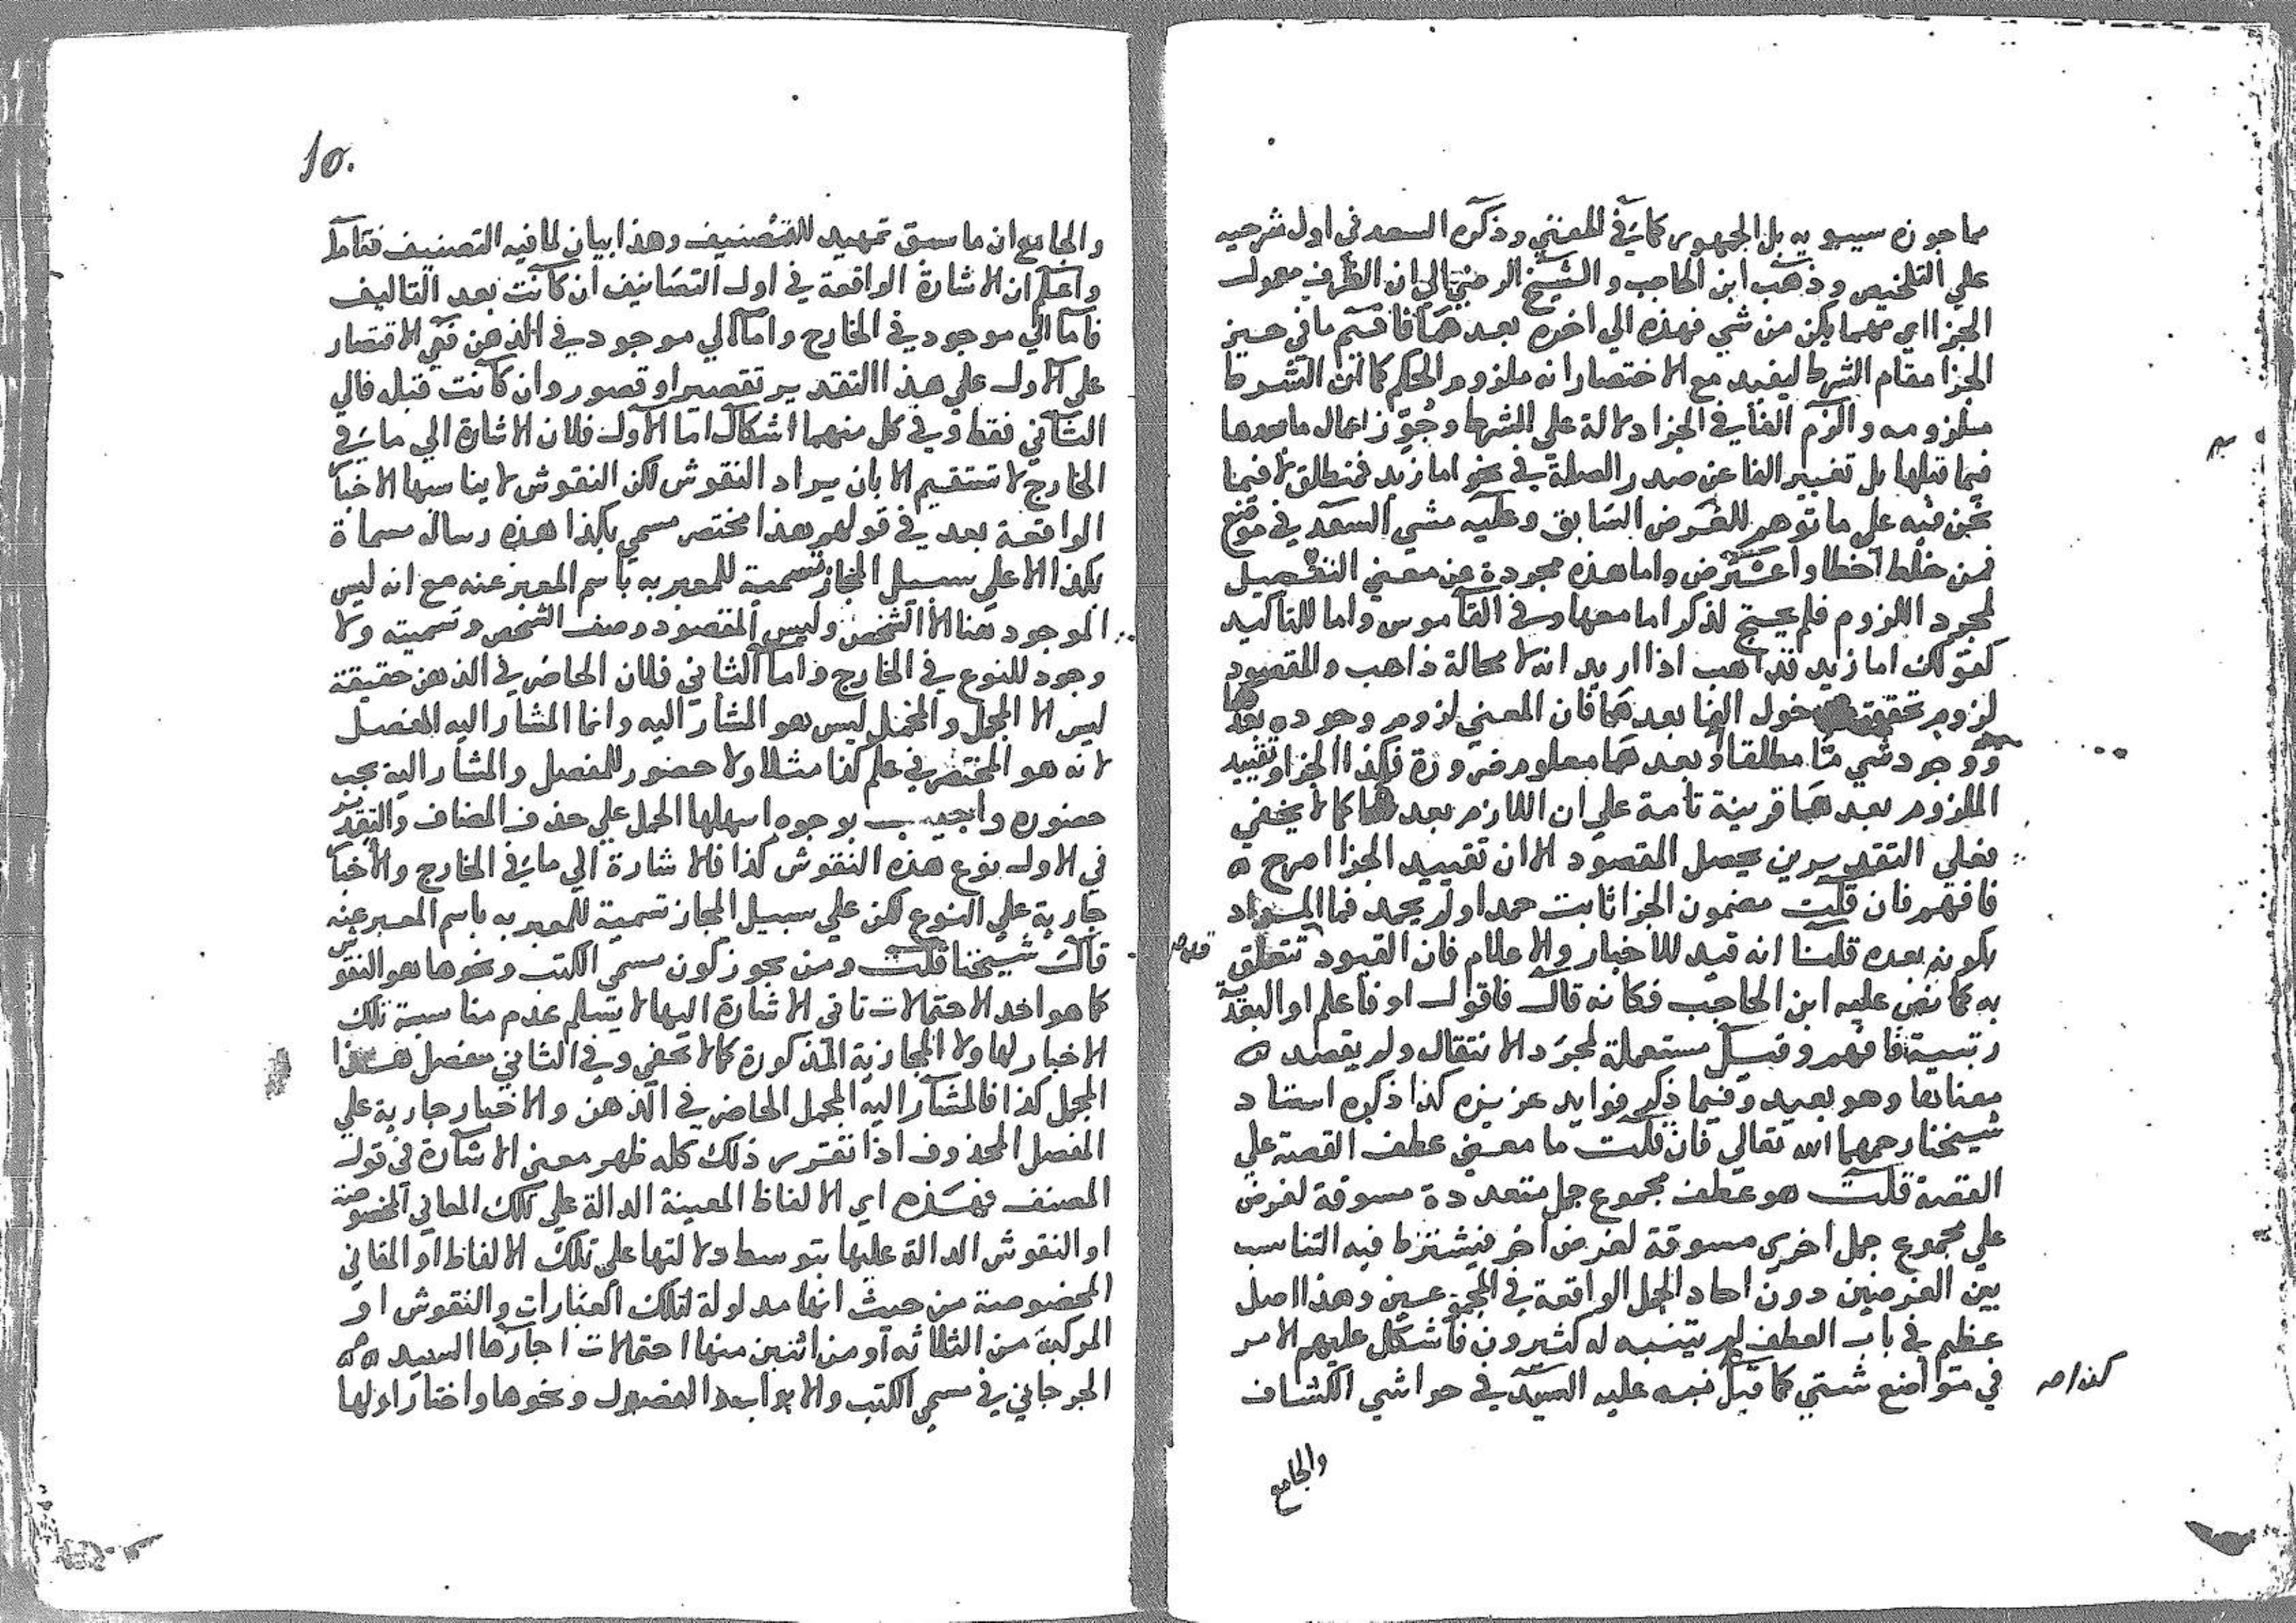 مما جوزه سيبويه بل الجمهور كما في المغني وذكره السعد في اول شرحيه
علي التلخيص وذهب ابن الحاجب والشيخ الرضي الي ان الظرف معمول
الجزا اي مهما يكن من شي فهذه الي اخره بعدها فاقسم ما في حيز
الجزا مقام الشرط ليفيد مع الاختصار انه ملزوم الحكم كما ان الشرط
ملزومه والزم الفا في الجزا دلالة علي الشرط وجوز اعمال ما بعدها
فيما قبلها بل تغيير الفا عن صدر الصلة في نحو اما زيد فمنطلق لا فيما
نحن فيه علي ما توهم للغرض السابق وعليه مشي السعد في موضع
فمن خلط اخطا واعترض واما هذه مجردة عن معني التفصيل
لمجرد اللزوم فلم يحتج لذكر اما معها وفي القاموس واما للتاكيد
كقولك اما زيد فذاهب اذا اريد انه لا محالة ذاهب والمقصود
لزوم تحقق دخول الفا بعدها فان المعني لزوم وجوده بعدها
ووجود شي ما مطلقا او بعدها معلوم ضرورة فكذا الجزا وتقييد
الملزوم بعدها قرينة تامة علي ان اللازم بعدها كما لا يخفي
فعلي التقديرين يحصل المقصود الا ان تقييد الجزا اصرح ه
فافهم فان قلت مضمون الجزا ثابت حمد او لم يحمد فما المراد
بكونه بعده قلنا انه قيد للاخبار والاعلام فان القيود تتعلق
به كما نص عليه ابن الحاجب فكانه قال فاقول او فاعلم او البعدية
رتبية فافهم وقيل مستعملة لمجرد الانتقال ولم يقصد ه
معناها وهو بعيد وفيما ذكر فوايد عزيزه كذا ذكره استاد
شيخنا رحمهما الله تعالي فان قلت ما معني عطف القصة علي
القصة قلت هو عطف مجموع جمل متعددة مسوقة لغرض
علي مجموع جمل اخري مسوقة لغرض اخر فيشترط فيه التناسب
بين الغرضين دون احاد الجمل الواقعة في المجموعين وهذا اصل
عظيم في باب العطف لم يتنبه له كثيرون فاشكل عليهم الامر
في مواضع شتي كما قبل نبه عليه السيد في حواشي الكشاف
والجامع
10.
والجامع ان ما سبق تمهيد للتصنيف وهذا بيان لما فيه التصنيف فتامل
واعلم ان الاشارة الواقعة في اول التصانيف ان كانت بعد التاليف
فاما الي موجود في الخارج واما الي موجود في الذهن ففي الاقتصار
علي الاول علي هذا التقدير تقصير او قصور وان كانت قبله فالي
الثاني فقط وفي كل منهما اشكال اما الاول فلان الاشارة الي ما في
الخارج لا تستقيم الا بان يراد النقوش لكن النقوش لا يناسبها الاخبار
الواقعة بعد في قولهم هذا مختصر مسمي بكذا هذه رسالة مسماة
بكذا الا علي سبيل المجاز تسمية للمعبر به باسم المعبر عنه مع انه ليس
الموجود هنا الا الشخص وليس المقصود وصف الشخص وتسميته ولا
وجود للنوع في الخارج واما الثاني فلان الحاضر في الذهن حقيقة
ليس الا المجمل والمجمل ليس هو المشار اليه وانما المشار اليه المفصل
لانه هو المختصر في علم كذا مثلا ولا حضور للمفصل والمشار اليه يجب
حضوره واجيب بوجوه اسهلها الحمل علي حذف المضاف والتقدير
في الاول نوع هذه النقوش كذا فالاشارة الي ما في الخارج والاخبار
جارية علي النوع لكن علي سبيل المجاز تسمية للمعبر به باسم المعبر عنه
قال شيخنا قلت ومن يجوز كون مسمي الكتب ونحوها هو النقوش
كما هو احد الاحتمالات تاتي الاشارة اليها لا يسلم عدم مناسبة تلك
الاخبار لها ولا المجازية المذكورة كما لا يخفي وفي الثاني مفصل هذا
المجمل كذا فالمشار اليه المجمل الحاضر في الذهن والاخبار جارية علي
المفصل المحذوف اذا تقرر ذلك كله ظهر معني الاشارة في قول
المصنف فهذه اي الالفاظ المعينة الدالة علي تلك المعاني المخصوصة
او النقوش الدالة عليها بتوسط دلالتها علي تلك الالفاظ او المعاني
المخصوصة من حيث انها مدلولة لتلك العبارات والنقوش او
المركبة من الثلاثه او من اثنين منها احتمالات اجازها السيد ه ه
الجرجاني في مسمي الكتب والابواب والفصول ونحوها واختار اولها